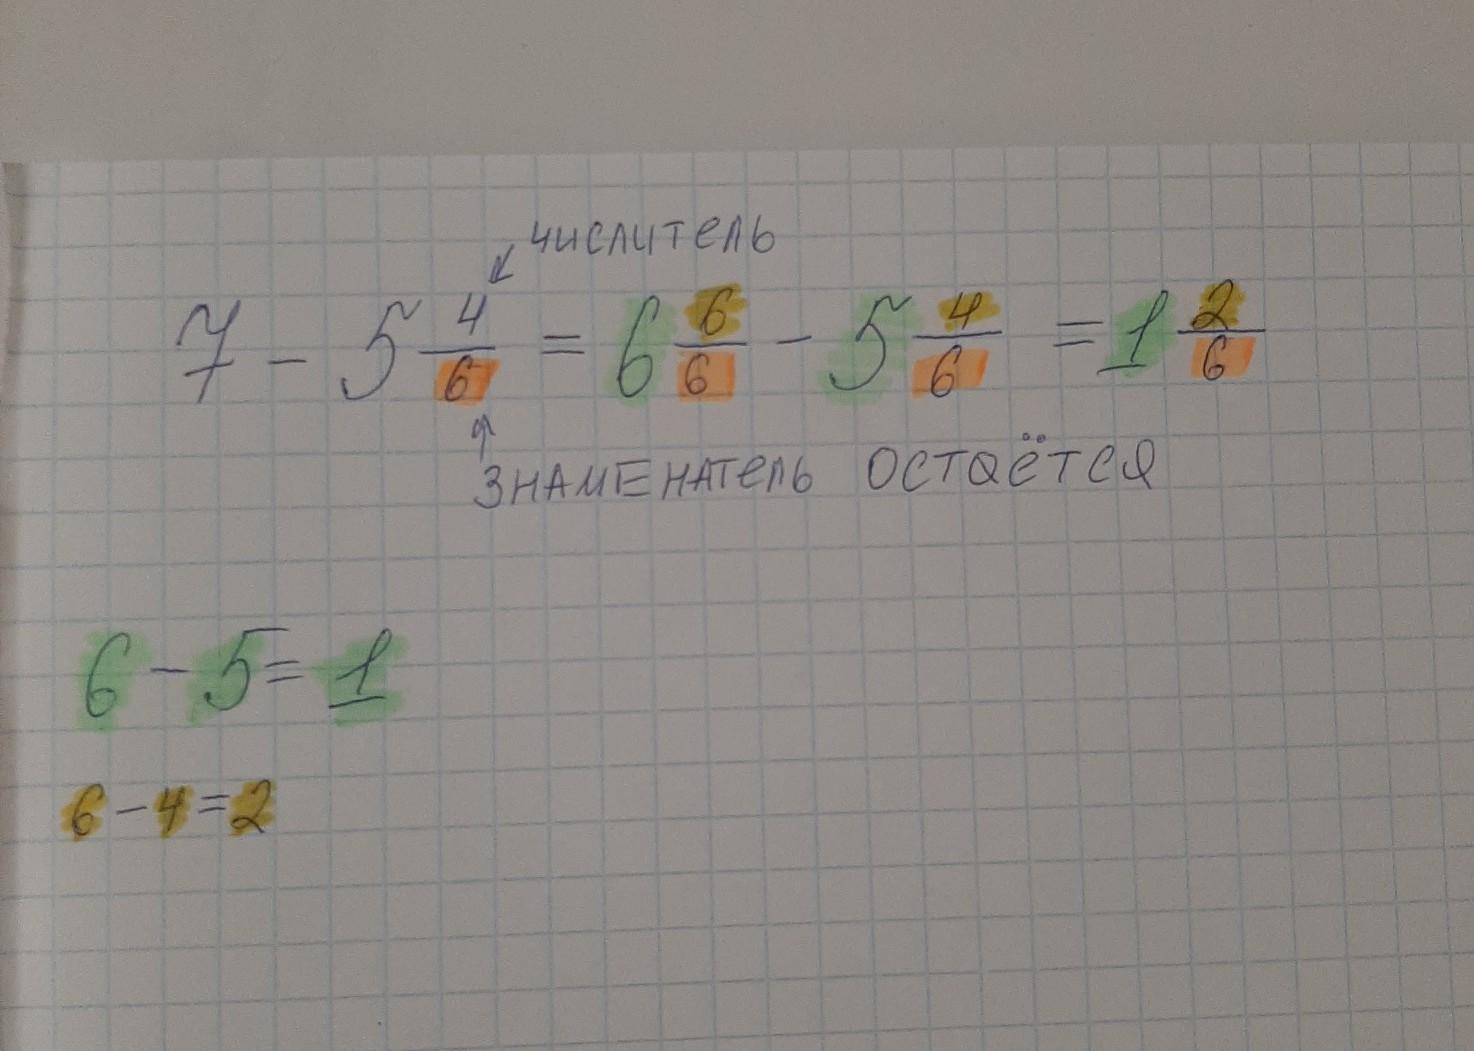 числитель
7 - 5 4/6 = 6 6/6 - 5 4/6 = 1 2/6
знаменатель остаётся
6 - 5 = 1
6 - 4 = 2